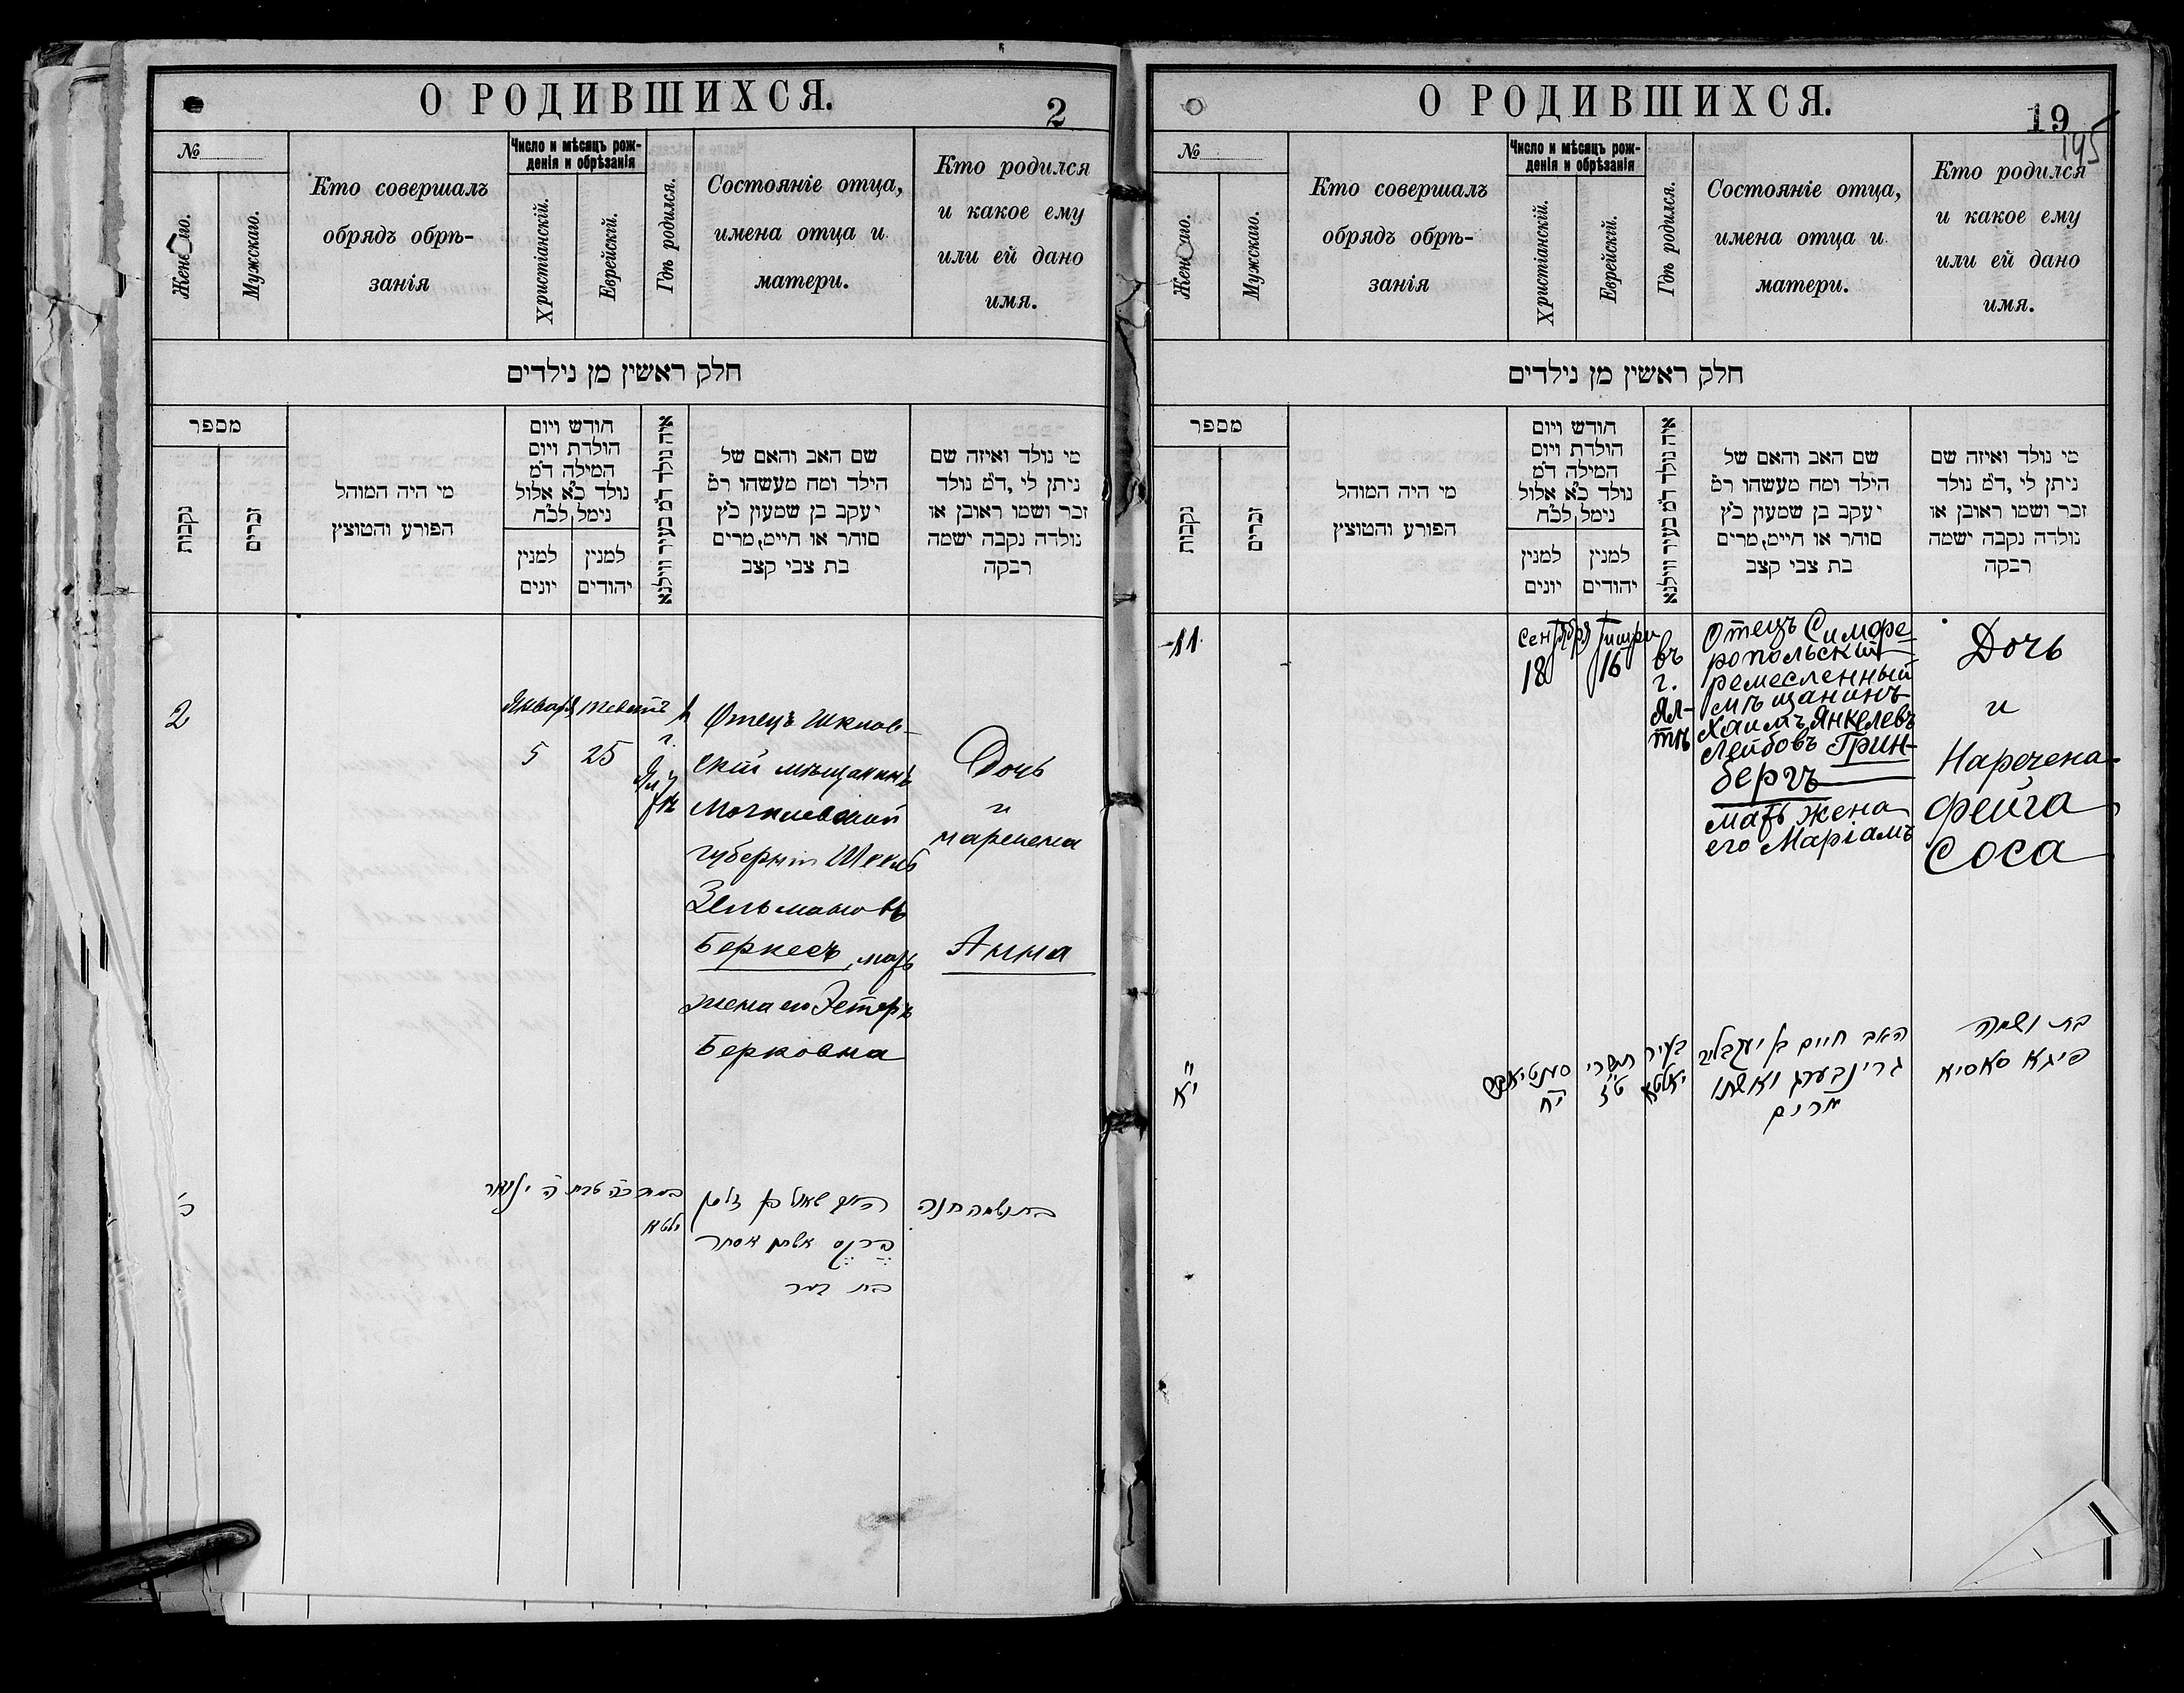 О РОДИВШИХСЯ.
2
№
Женскаго.
Мужскаго.
Кто совершалъ
обрядъ обрѣ-
занія
Число и мѣсяцъ рож-
денія и обрѣзанія
Христіанскій.
Еврейскій.
Гдѣ родился.
Состояніе отца,
имена отца и
матери.
Кто родился
и какое ему
или ей дано
имя.
חלק ראשין מן נילדים
מספר
נקבות
זכרים
מי היה המוהל
הפורע והמוצץ
חודש ויום
הולדת ויום
המילה ד״מ
נולד כ״א אלול
נימל לכ״ח
למנין
יונים
למנין
יהודים
איה נולד ד״מ בעיר ווילנא
שם האב והאם של
הילד ומה מעשהו ר״מ
יעקב בן שמעון כ״ץ
סוחר או חייט, מרים
בת צבי קצב
מי נולד ואיזה שם
ניתן לי, ד״מ נולד
זכר ושמו ראובן או
נולדה נקבה ישמה
רבקה
2
Января
5
Тевтъ
25
г.
Ял
тѣ
Отецъ Шклов-
скій мѣщанинъ
Могилевской
губерніи
Зельмановъ
Беркесъ, мать
жена его Эстеръ
Берковна
Дочь
и
наречена
Анна
О РОДИВШИХСЯ.
19
195
№
Женскаго.
Мужскаго.
Кто совершалъ
обрядъ обрѣ-
занія
Число и мѣсяцъ рож-
денія и обрѣзанія
Христіанскій.
Еврейскій.
Гдѣ родился.
Состояніе отца,
имена отца и
матери.
Кто родился
и какое ему
или ей дано
имя.
חלק ראשין מן נילדים
מספר
נקבות
זכרים
מי היה המוהל
הפורע והמוצץ
חודש ויום
הולדת ויום
המילה ד״מ
נולד כ״א אלול
נימל לכ״ח
למנין
יונים
למנין
יהודים
איה נולד ד״מ בעיר ווילנא
שם האב והאם של
הילד ומה מעשהו ר״מ
יעקב בן שמעון כ״ץ
סוחר או חייט, מרים
בת צבי קצב
מי נולד ואיזה שם
ניתן לי, ד״מ נולד
זכר ושמו ראובן או
נולדה נקבה ישמה
רבקה
11
Сентября
18
Тишри
16
въ
г.
Ял-
тѣ
Отецъ Симфе-
ропольскій
ремесленный
мѣщанинъ
Хаимъ Янкелевъ
Лейбовъ Грин-
бергъ
мать жена
его Маріамъ
Дочь
и
Наречена
Фейга
Соса
י״א
י״ח
תשרי
ט״ז
בעיר
יאלטא
האב חיים בן
גרינבערג ואשתו
מרים
בת ושמה
פיגא סאסיא